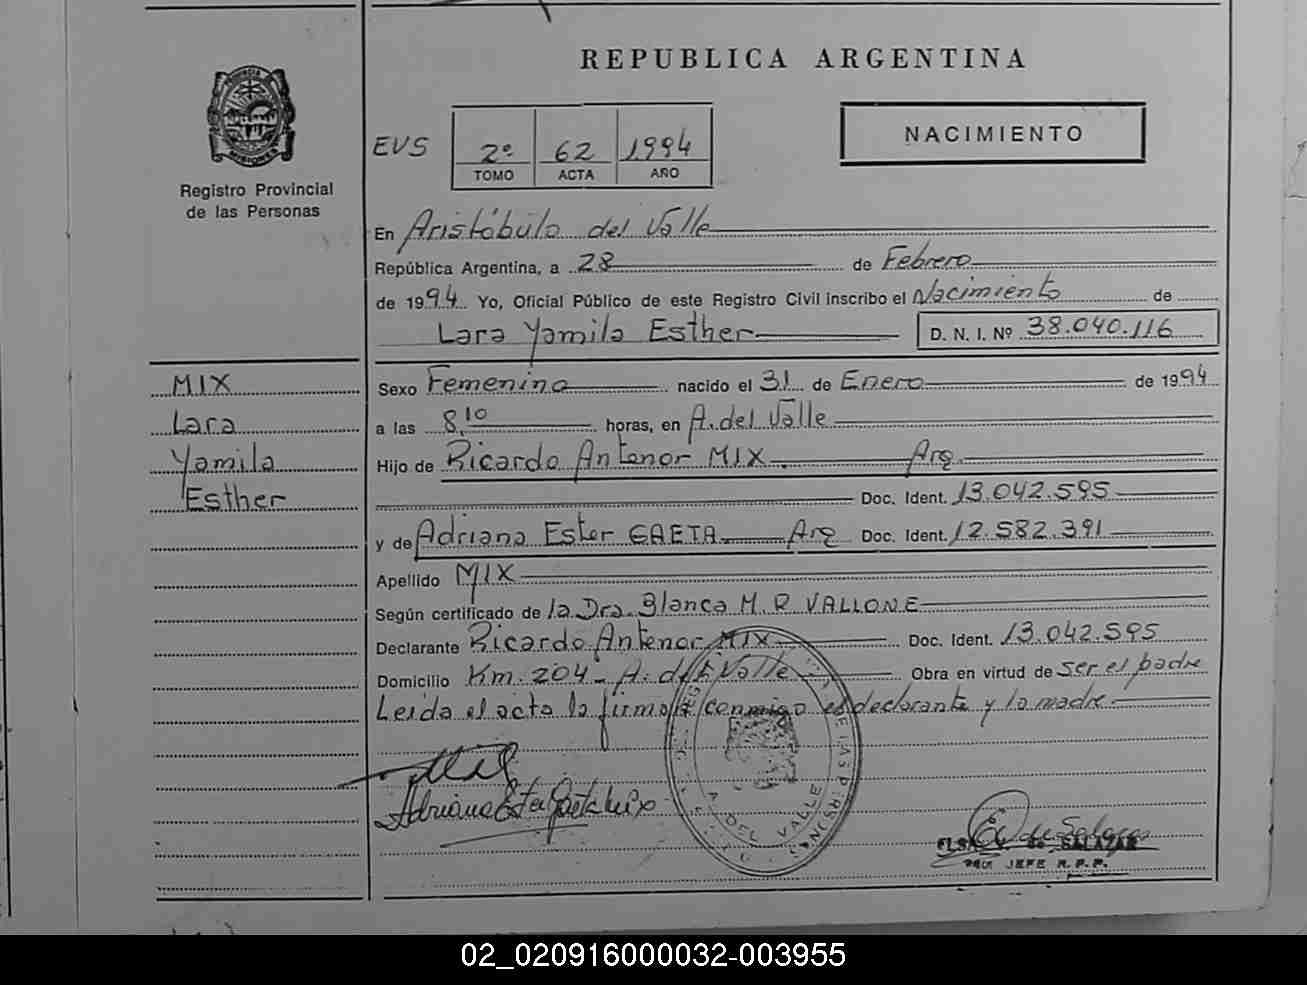 REPUBLICA ARGENTINA
PROVINCIA DE
MISIONES
Registro Provincial
de las Personas
EVS
2º 62 1994
TOMO ACTA AÑO
NACIMIENTO
En Aristóbulo del Valle
República Argentina, a 28 de Febrero
de 1994 Yo, Oficial Público de este Registro Civil inscribo el Nacimiento de
Lara Yamila Esther D. N. I. Nº 38.040.116
MIX
Lara
Yamila
Esther
Sexo Femenino nacido el 31 de Enero de 1994
a las 8,10 horas, en A. del Valle
Hijo de Ricardo Antenor MIX Arg.
Doc. Ident. 13.042.595
y de Adriana Ester GAETA Arg Doc. Ident. 12.582.391
Apellido MIX
Según certificado de la Dra. Blanca M. R VALLONE
Declarante Ricardo Antenor MIX Doc. Ident. 13.042.595
Domicilio Km. 204 - A. del Valle Obra en virtud de ser el padre
Leida el acta la firma conmigo el declarante y la madre
Adriana Ester Gaeta
A. DEL VALLE
ELSA de SALAZAR
JEFE R. P. P.
02_020916000032-003955